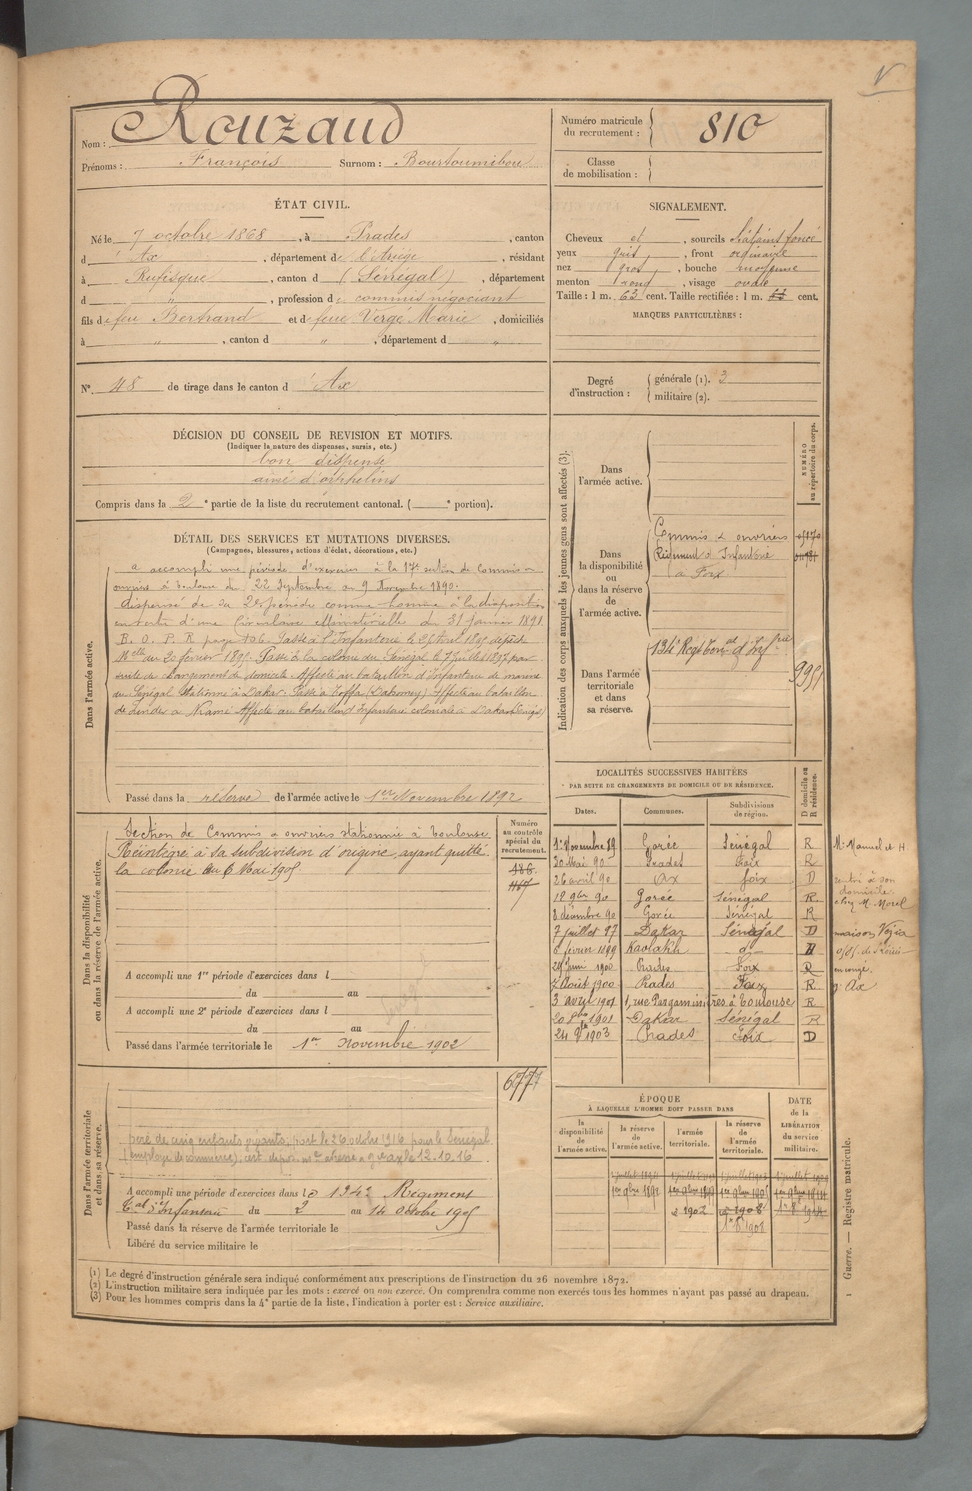 Nom : Rouzaud
Prénoms : François Surnom : Bourtoumibou
Numéro matricule du recrutement : 810
Classe de mobilisation :
ÉTAT CIVIL.
Né le 7 octobre 1868, à Prades, canton
d' Ax, département de l'Ariège, résidant
à Rufisque, canton d (Sénégal), département
d ", profession de commis négociant
fils de feu Bertrand et de feue Vergé Marie, domiciliés
à ", canton d ", département d "
N° 48 de tirage dans le canton d' Ax
SIGNALEMENT.
Cheveux et, sourcils châtains foncé
yeux gris, front ordinaire
nez gros, bouche moyenne
menton rond, visage ovale
Taille : 1 m. 63 cent. Taille rectifiée : 1 m. cent.
MARQUES PARTICULIÈRES :
Degré d'instruction : générale (1). 3
militaire (2).
DÉCISION DU CONSEIL DE REVISION ET MOTIFS.
(Indiquer la nature des dispenses, sursis, etc.)
bon dispensé
ainé d'orphelins
Compris dans la 2e partie de la liste du recrutement cantonal. ( e portion).
DÉTAIL DES SERVICES ET MUTATIONS DIVERSES.
(Campagnes, blessures, actions d'éclat, décorations, etc.)
Dans l'armée active.
a accompli une période d'exercices à la 17e section de Commis &
ouvriers à Toulouse du 22 Septembre au 9 Novembre 1890.
dispensé de sa 2e période comme homme à la disposition
en vertu d'une Circulaire Ministérielle du 31 janvier 1891
B. O. P. R page 106. Passé à l'Infanterie le
Mlle du 20 février 1895. Passé à la colonie du Sénégal le 7 juillet 1897 par
suite de changement de domicile. Affecté au bataillon d'Infanterie de marine
du Sénégal stationné à Dakar. Passé à (Dahomey) Affecté au bataillon
Affecté au bataillon d'Infanterie coloniale à Dakar (Sénégal)
Passé dans la réserve de l'armée active le 1er Novembre 1892
Indication des corps auxquels les jeunes gens sont affectés (3).
NUMÉRO au répertoire du corps.
Dans l'armée active.
Dans la disponibilité ou dans la réserve de l'armée active.
Commis & ouvriers
Régiment d'Infanterie
à Foix
Dans l'armée territoriale et dans sa réserve.
134e Régt Territal d'Infrie
995
LOCALITÉS SUCCESSIVES HABITÉES
PAR SUITE DE CHANGEMENTS DE DOMICILE OU DE RÉSIDENCE.
Dates. Communes. Subdivisions de région. D domicile ou R résidence.
1er Novembre 89 Gorée Sénégal R
20 Mai 90 Prades Foix R
26 avril 90 Ax foix D
12 9bre 90 Gorée Sénégal R
8 décembre 90 Gorée Sénégal R
7 juillet 97 Dakar Sénégal D
6 février 1899 Kaolakh d°
29 Juin 1900 Prades Foix R
7 Août 1900 Prades Foix R
3 avril 1901 1, rue Pargaminières à Toulouse R
20 1901 Dakar Sénégal R
24 1903 Prades Foix D
rentré à son domicile
chez M. Morel
en congé.
p. Ax
Dans la disponibilité ou dans la réserve de l'armée active.
Numéro au contrôle spécial du recrutement.
Section de Commis & ouvriers stationnée à Toulouse
Réintégré à sa subdivision d'origine, ayant quitté
la colonie du 6 Mai 1905
A accompli une 1re période d'exercices dans l
du au
A accompli une 2e période d'exercices dans l
du au
Passé dans l'armée territoriale le 1er Novembre 1902
Dans l'armée territoriale et dans sa réserve.
6777
père de cinq enfants vivants, part le 26 octobre 1916 pour le Sénégal
(employé de commerce)
A accompli une période d'exercices dans le 134e Régiment
Tal d'Infanterie du 2 au 14 octobre 1905
Passé dans la réserve de l'armée territoriale le
Libéré du service militaire le
ÉPOQUE À LAQUELLE L'HOMME DOIT PASSER DANS
la disponibilité de l'armée active.
la réserve de l'armée active.
l'armée territoriale.
la réserve de l'armée territoriale.
DATE de la LIBÉRATION du service militaire.
1er 9bre 1892
(1) Le degré d'instruction générale sera indiqué conformément aux prescriptions de l'instruction du 26 novembre 1872.
(2) L'instruction militaire sera indiquée par les mots : exercé ou non exercé. On comprendra comme non exercés tous les hommes n'ayant pas passé au drapeau.
(3) Pour les hommes compris dans la 4e partie de la liste, l'indication à porter est : Service auxiliaire.
Guerre. — Registre matricule.